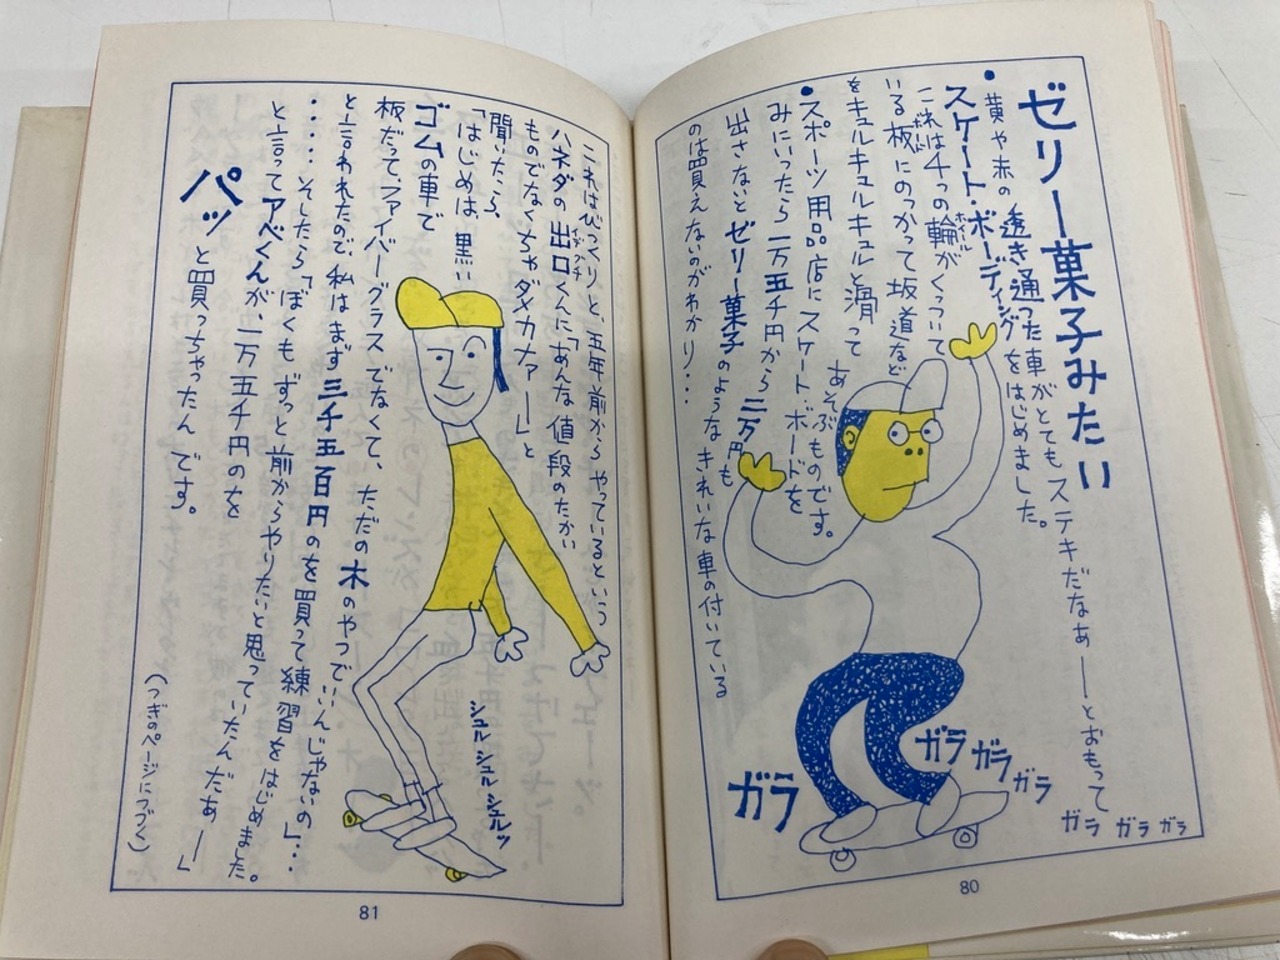 ゼリー菓子みたい
・黄や赤の透き通った車がとてもステキだなぁーーとおもって
スケート・ボーディングをはじめました。
これは4つの輪がくっついて
ホイル
いる板にのっかって坂道など
をキュルキュルキュルと滑って
あそぶものです。
・スポーツ用品店にスケート・ボードを
みにいったら一万五千円から二万円も
出さないとゼリー菓子のようなきれいな車の付いている
のは買えないのがわかり・・・
ガラ
ガラ
ガラ
ガラ
ガラ ガラ ガラ
80
これはびっくりと、五年前からやっているという
ハネダの出口くんに「あんな値段のたかい
イデグチ
ものでなくちゃダメカナァー」と
聞いたら、
「はじめは黒い
ゴムの車で
板だって、ファイバーグラスでなくて、ただの木のやつでいんじゃないの」・・・
と言われたので、私はまず三千五百円のを買って練習をはじめました。
・・・・そしたら「ぼくもずっと前からやりたいと思っていたんだぁー」
と言ってアベくんが、一万五千円のを
パッと買っちゃったんです。
シュルシュルシュルッ
(つぎのページにつづく)
81